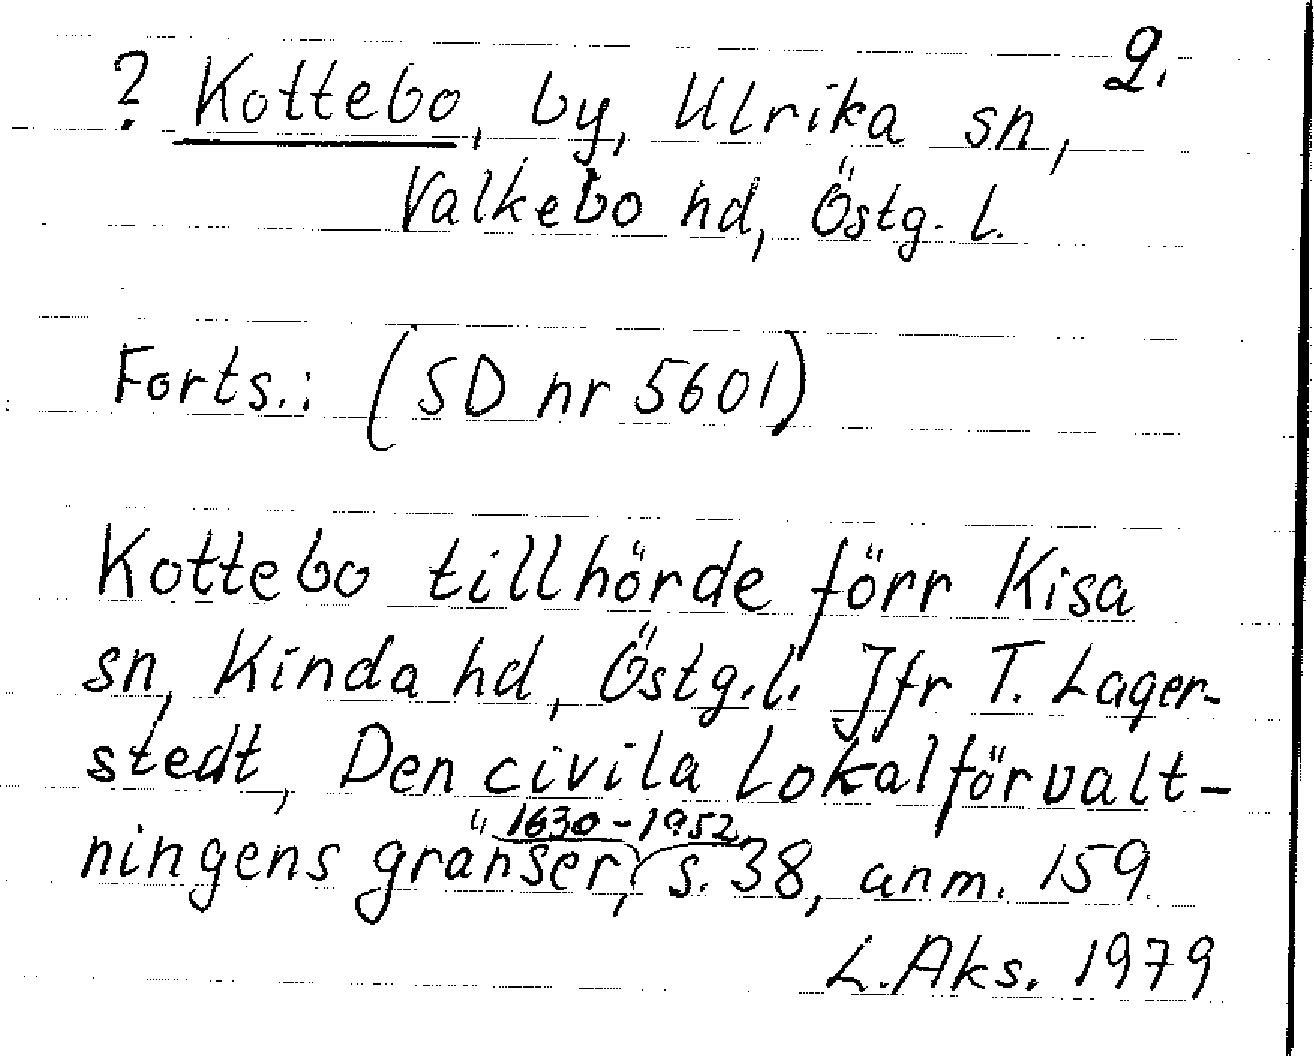 2.
? Kottebo, by, Ulrika sn,
Valkebo hd, Östg. l.
Forts.: (SD nr 5601)
Kottebo tillhörde förr Kisa
sn, Kinda hd, Östg.l. Jfr T. Lager-
stedt, Den civila lokalförvalt-
ningens gränser 1630-1952, s. 38, anm. 159.
L.Aks. 1979